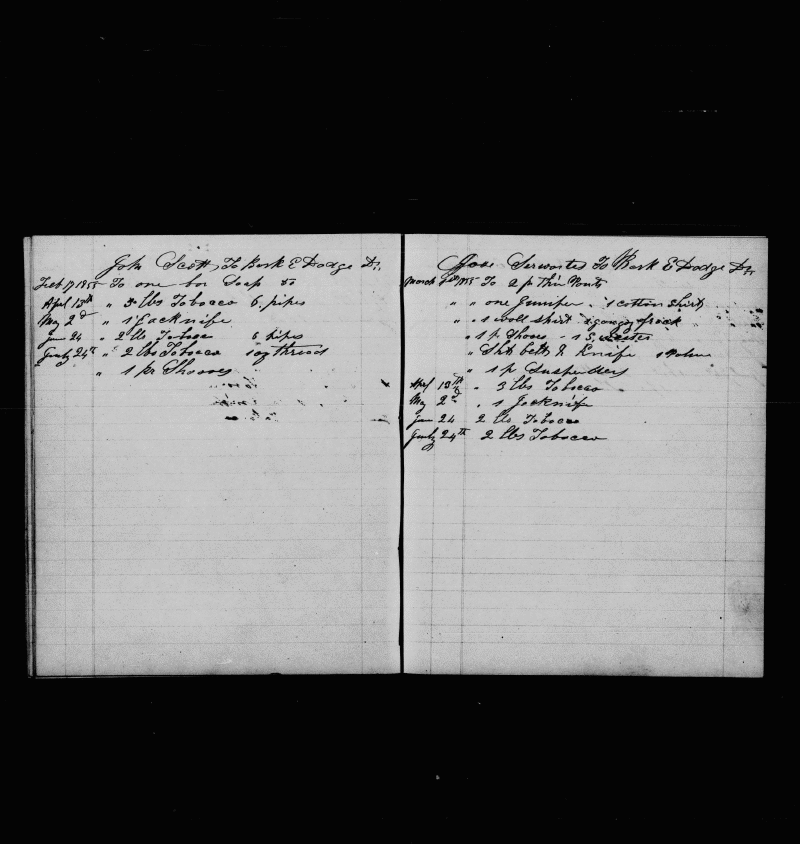 John Scott To Bark E Dodge Dr.
Feb 17 1855 To one bar Soap
April 13th " 3 lbs Tobacco 6 pipes
May 2d " 1 Jacknife
Jun 24 " 2 lbs Tobaco 6 pipes
July 24th " 2 lbs Tobacco thread
" 1 pr Shooves
To Bark E Dodge Dr.
March 1855 To 2 p thin Pants
" " one Jumper . 1 cotton shirt
" . 1 woll shirt frock
" 1 p Shooves - 1
" belt & Knife 1
" 1 p Suspenders
April 13th " 3 lbs Tobacco
May 2d " 1 Jacknife
Jun 24 2 lbs Tobacco
July 24th 2 lbs Tobacco